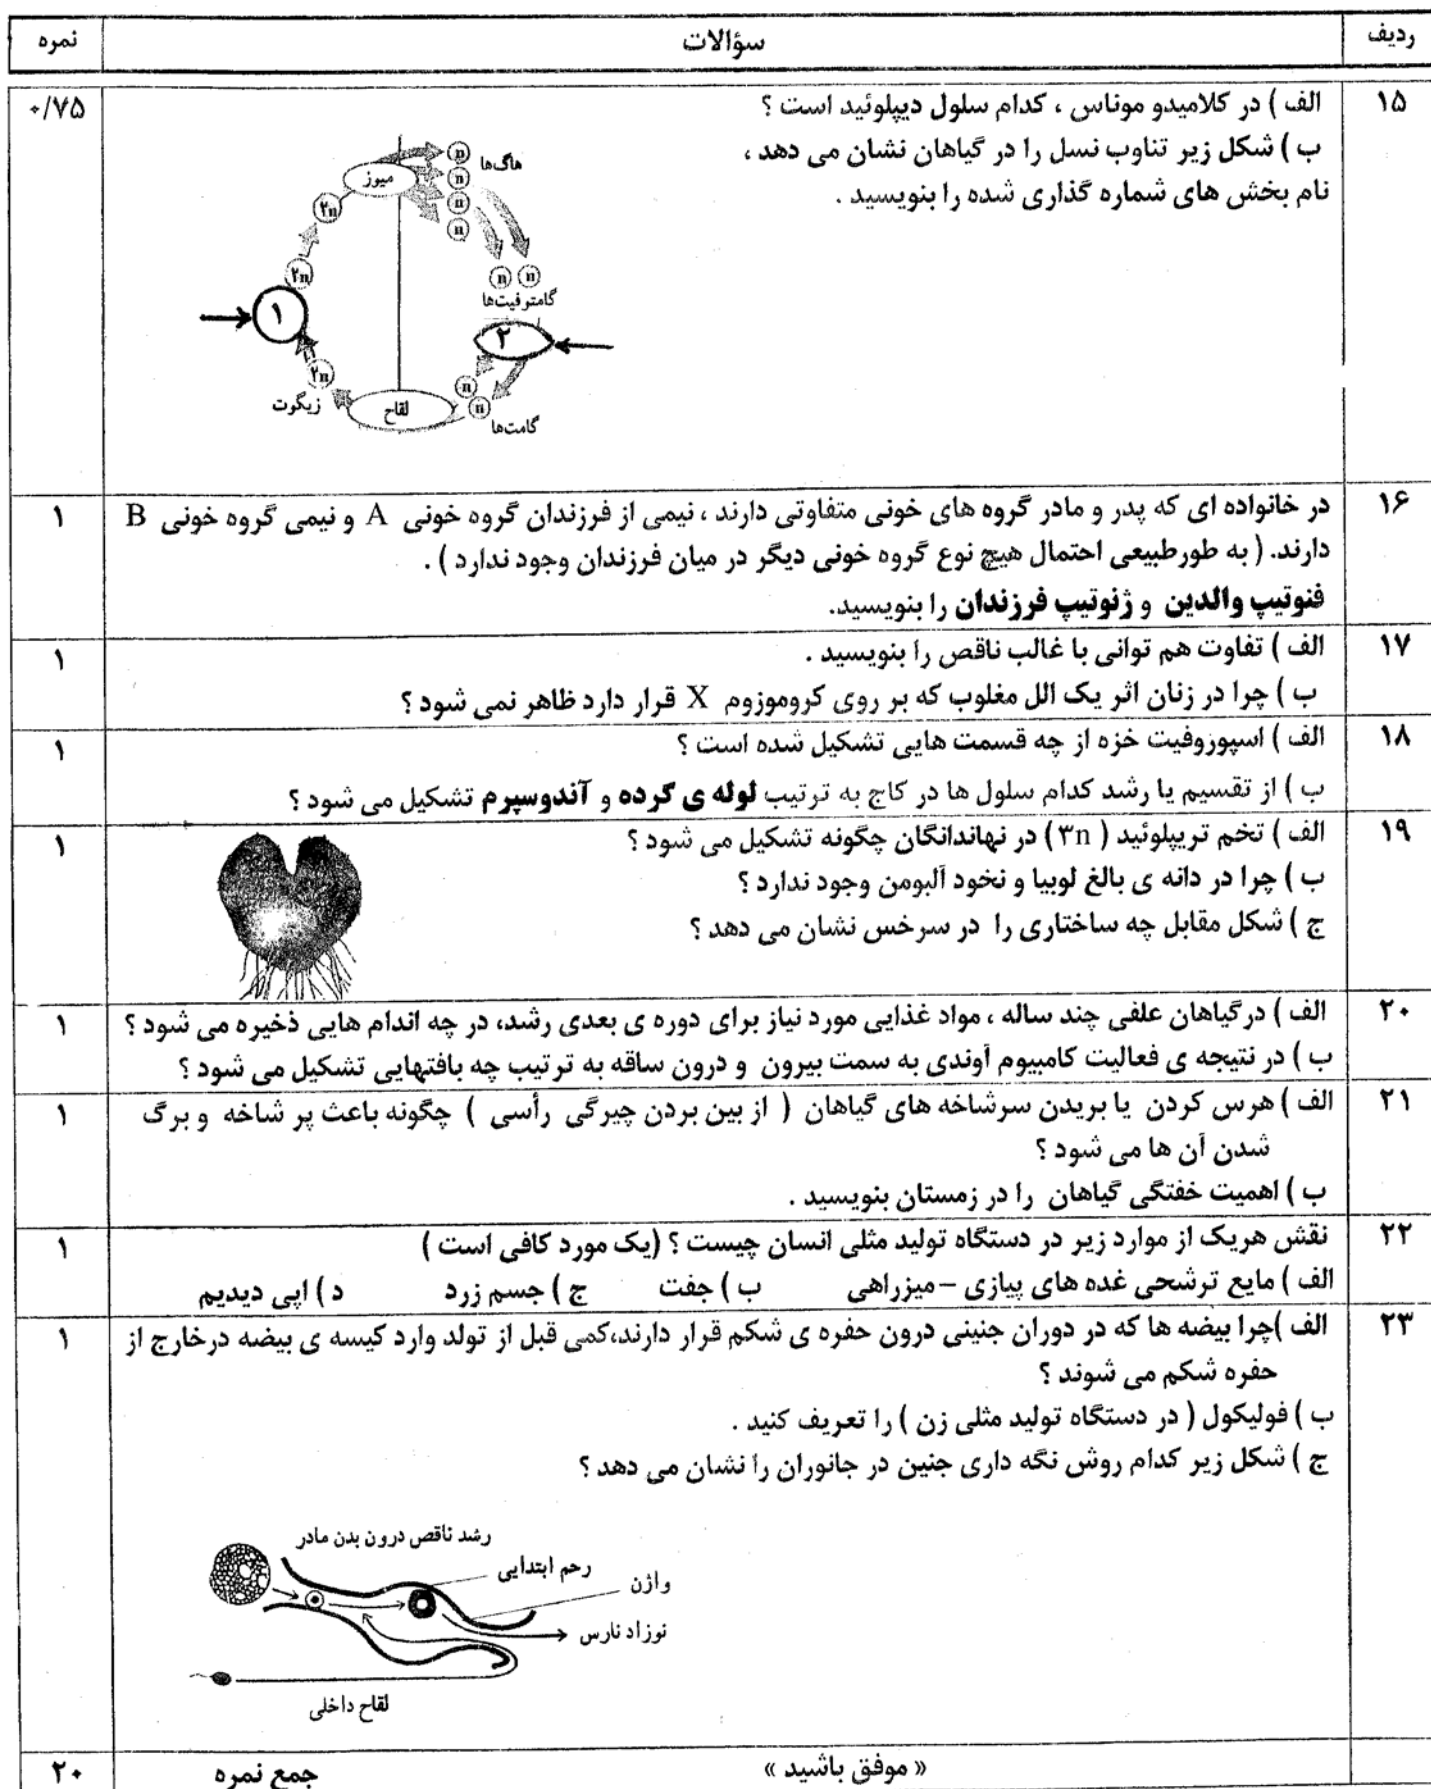 ردیف سؤالات نمره
۱۵ الف ) در کلامیدو موناس ، کدام سلول دیپلوئید است ؟ ۰/۷۵
ب ) شکل زیر تناوب نسل را در گیاهان نشان می دهد ،
نام بخش های شماره گذاری شده را بنویسید .
میوز
هاگ‌ها
n
n
n
n
۲n
۲n
n n
گامتوفیت‌ها
۱
۲
۲n
زیگوت
لقاح
n
n
گامت‌ها
۱۶ در خانواده ای که پدر و مادر گروه های خونی متفاوتی دارند ، نیمی از فرزندان گروه خونی A و نیمی گروه خونی B ۱
دارند. ( به طورطبیعی احتمال هیچ نوع گروه خونی دیگر در میان فرزندان وجود ندارد ) .
فنوتیپ والدین و ژنوتیپ فرزندان را بنویسید.
۱۷ الف ) تفاوت هم توانی با غالب ناقص را بنویسید . ۱
ب ) چرا در زنان اثر یک الل مغلوب که بر روی کروموزوم X قرار دارد ظاهر نمی شود ؟
۱۸ الف ) اسپوروفیت خزه از چه قسمت هایی تشکیل شده است ؟ ۱
ب ) از تقسیم یا رشد کدام سلول ها در کاج به ترتیب لوله ی گرده و آندوسپرم تشکیل می شود ؟
۱۹ الف ) تخم تریپلوئید ( ۳n ) در نهاندانگان چگونه تشکیل می شود ؟ ۱
ب ) چرا در دانه ی بالغ لوبیا و نخود آلبومن وجود ندارد ؟
ج ) شکل مقابل چه ساختاری را در سرخس نشان می دهد ؟
۲۰ الف ) درگیاهان علفی چند ساله ، مواد غذایی مورد نیاز برای دوره ی بعدی رشد، در چه اندام هایی ذخیره می شود ؟ ۱
ب ) در نتیجه ی فعالیت کامبیوم آوندی به سمت بیرون و درون ساقه به ترتیب چه بافتهایی تشکیل می شود ؟
۲۱ الف ) هرس کردن یا بریدن سرشاخه های گیاهان ( از بین بردن چیرگی رأسی ) چگونه باعث پر شاخه و برگ ۱
شدن آن ها می شود ؟
ب ) اهمیت خفتگی گیاهان را در زمستان بنویسید .
۲۲ نقش هریک از موارد زیر در دستگاه تولید مثلی انسان چیست ؟ (یک مورد کافی است ) ۱
الف ) مایع ترشحی غده های پیازی – میزراهی ب ) جفت ج ) جسم زرد د ) اپی دیدیم
۲۳ الف )چرا بیضه ها که در دوران جنینی درون حفره ی شکم قرار دارند،کمی قبل از تولد وارد کیسه ی بیضه درخارج از ۱
حفره شکم می شوند ؟
ب ) فولیکول ( در دستگاه تولید مثلی زن ) را تعریف کنید .
ج ) شکل زیر کدام روش نگه داری جنین در جانوران را نشان می دهد ؟
رشد ناقص درون بدن مادر
رحم ابتدایی
واژن
نوزاد نارس
لقاح داخلی
« موفق باشید » جمع نمره ۲۰